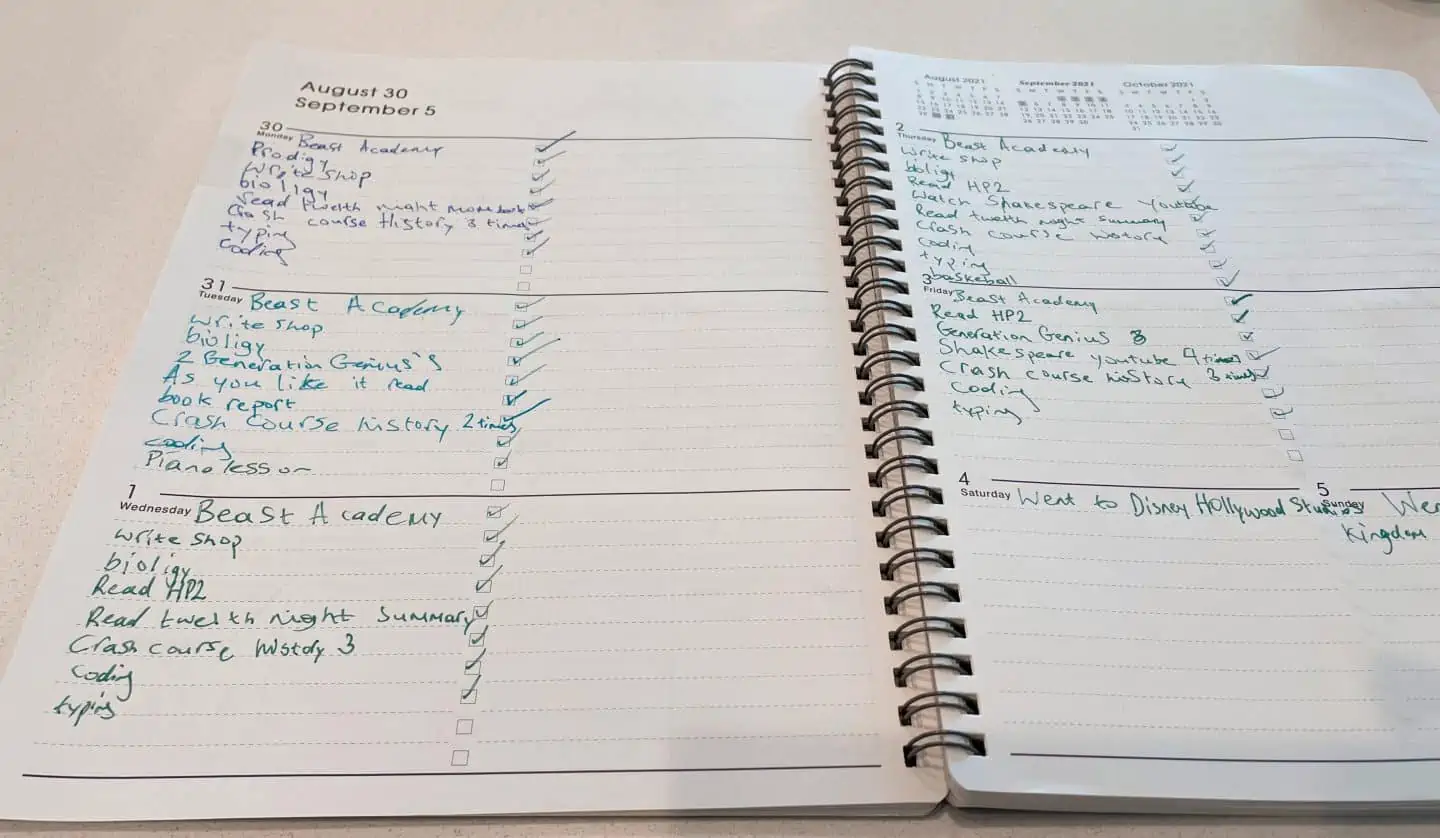 August 30
September 5
30
Monday Beast Academy
Prodigy
Write Shop
biolligy
read twelth night more book
Crash course History 3 times
typing
Coding
31
Tuesday Beast Academy
Write Shop
bioligy
2 Generation Genius's
As you like it read
book report
Crash course history 2 times
coding
Piano lesson
1
Wednesday Beast Academy
write shop
bioligy
Read HP2
Read twelth night Summary
Crash course history 3
coding
typing
August 2021 September 2021 October 2021
2
Thursday Beast Academy
Write shop
boligy
Read HP2
Watch Shakespeare Youtube
Read twelth night summary
Crash course history
coding
typing
basketball
3
Friday Beast Academy
Read HP2
Generation Genius 3
Shakespeare youtube 4 times
Crash course history 3 times
Coding
typing
4
Saturday Went to Disney Hollywood Studios
5
Sunday
Kingdom